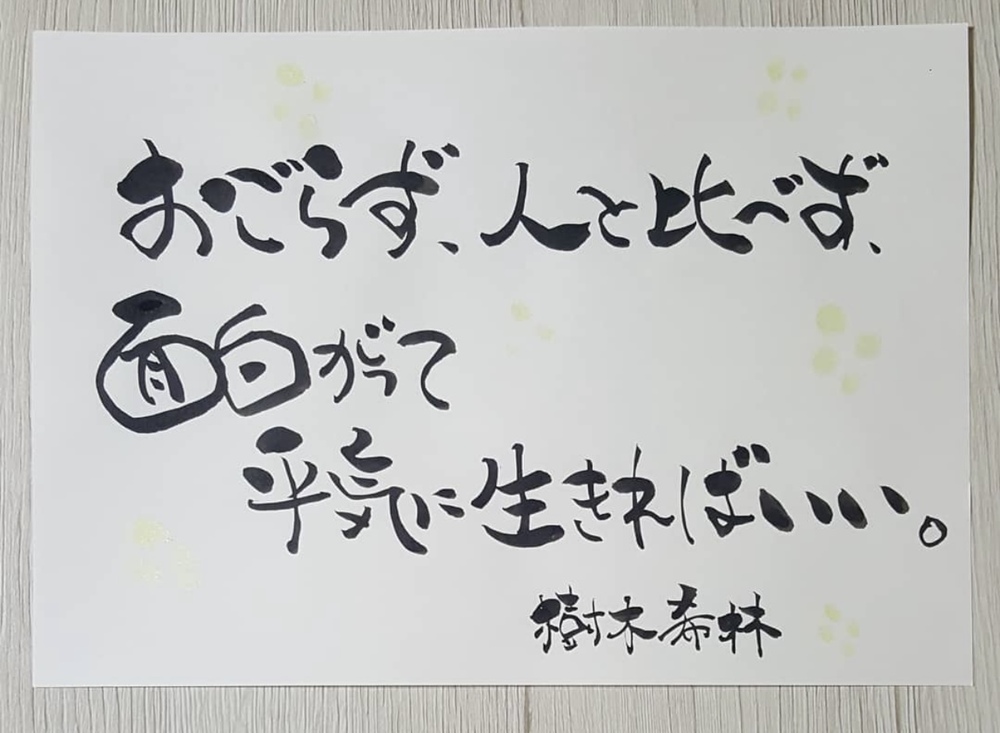 おごらず、人と比べず、
面白がって
平気に生きればいい。
樹木希林